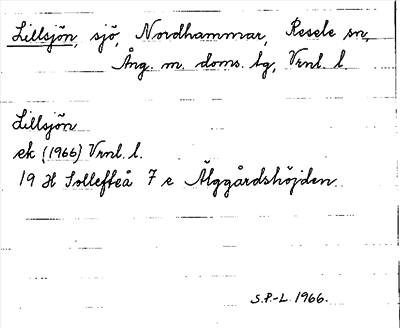 Lillsjön, sjö, Nordhammar, Resele sn,
Ång. m. doms. lg, Vrnl. l.
Lillsjön
ek (1966) Vrnl. l.
19 H Sollefteå 7 e Älggårdshöjden.
S.P-L. 1966.